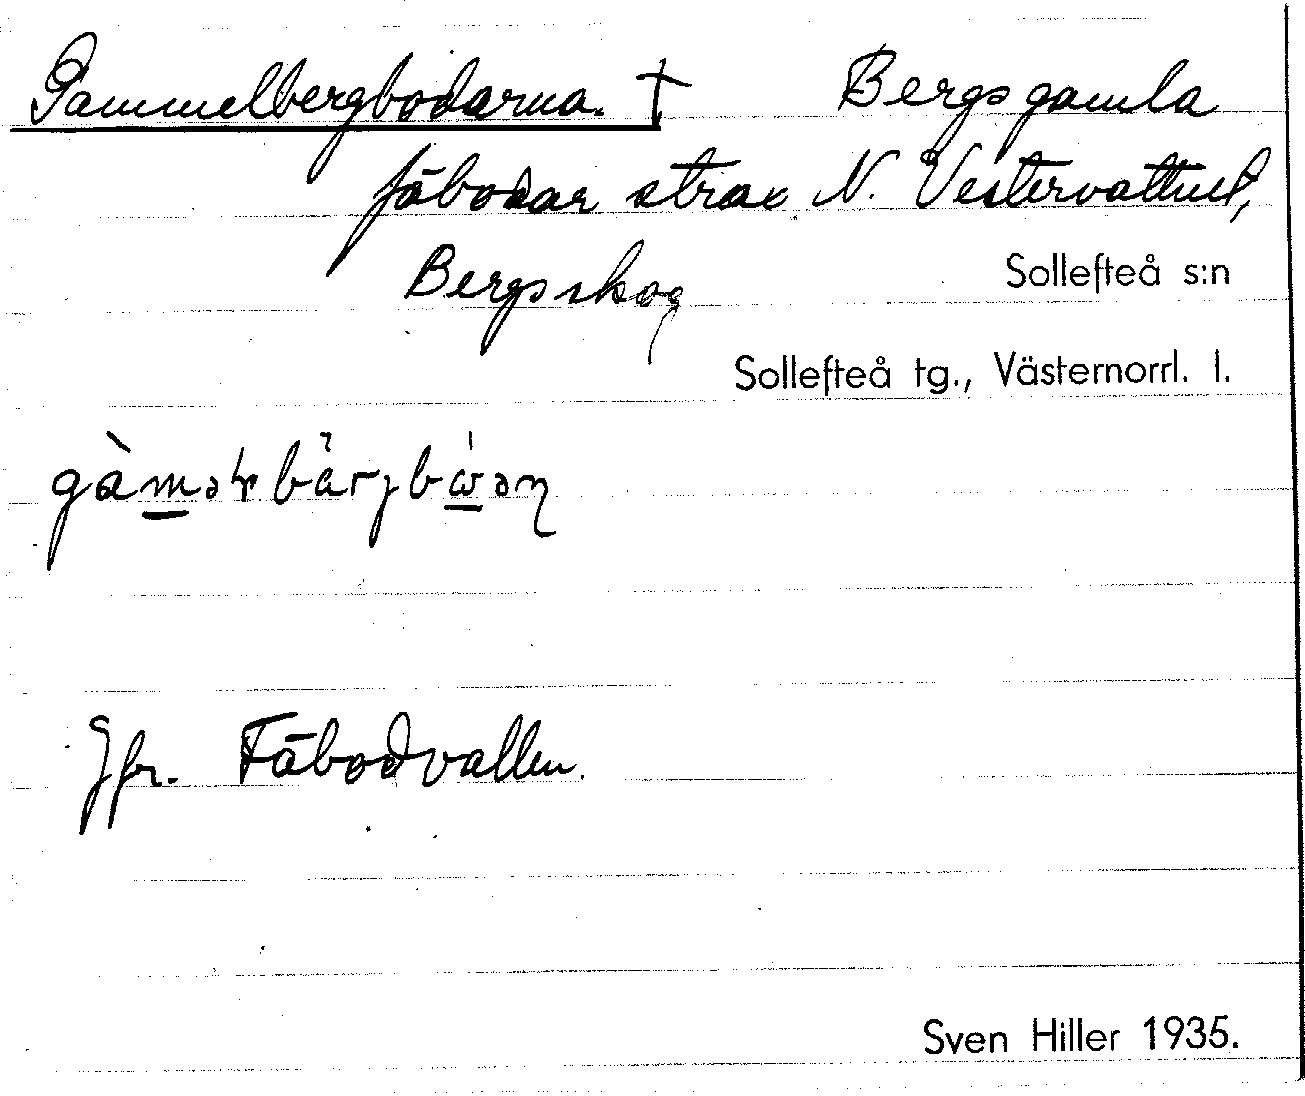 Gammelbergbodarna. † Bergs gamla
fäbodar strax N. Vestervattnet,
Bergs skog Sollefteå s:n
Sollefteå tg., Västernorrl. l.
Jfr. Fäbodvallen.
Sven Hiller 1935.